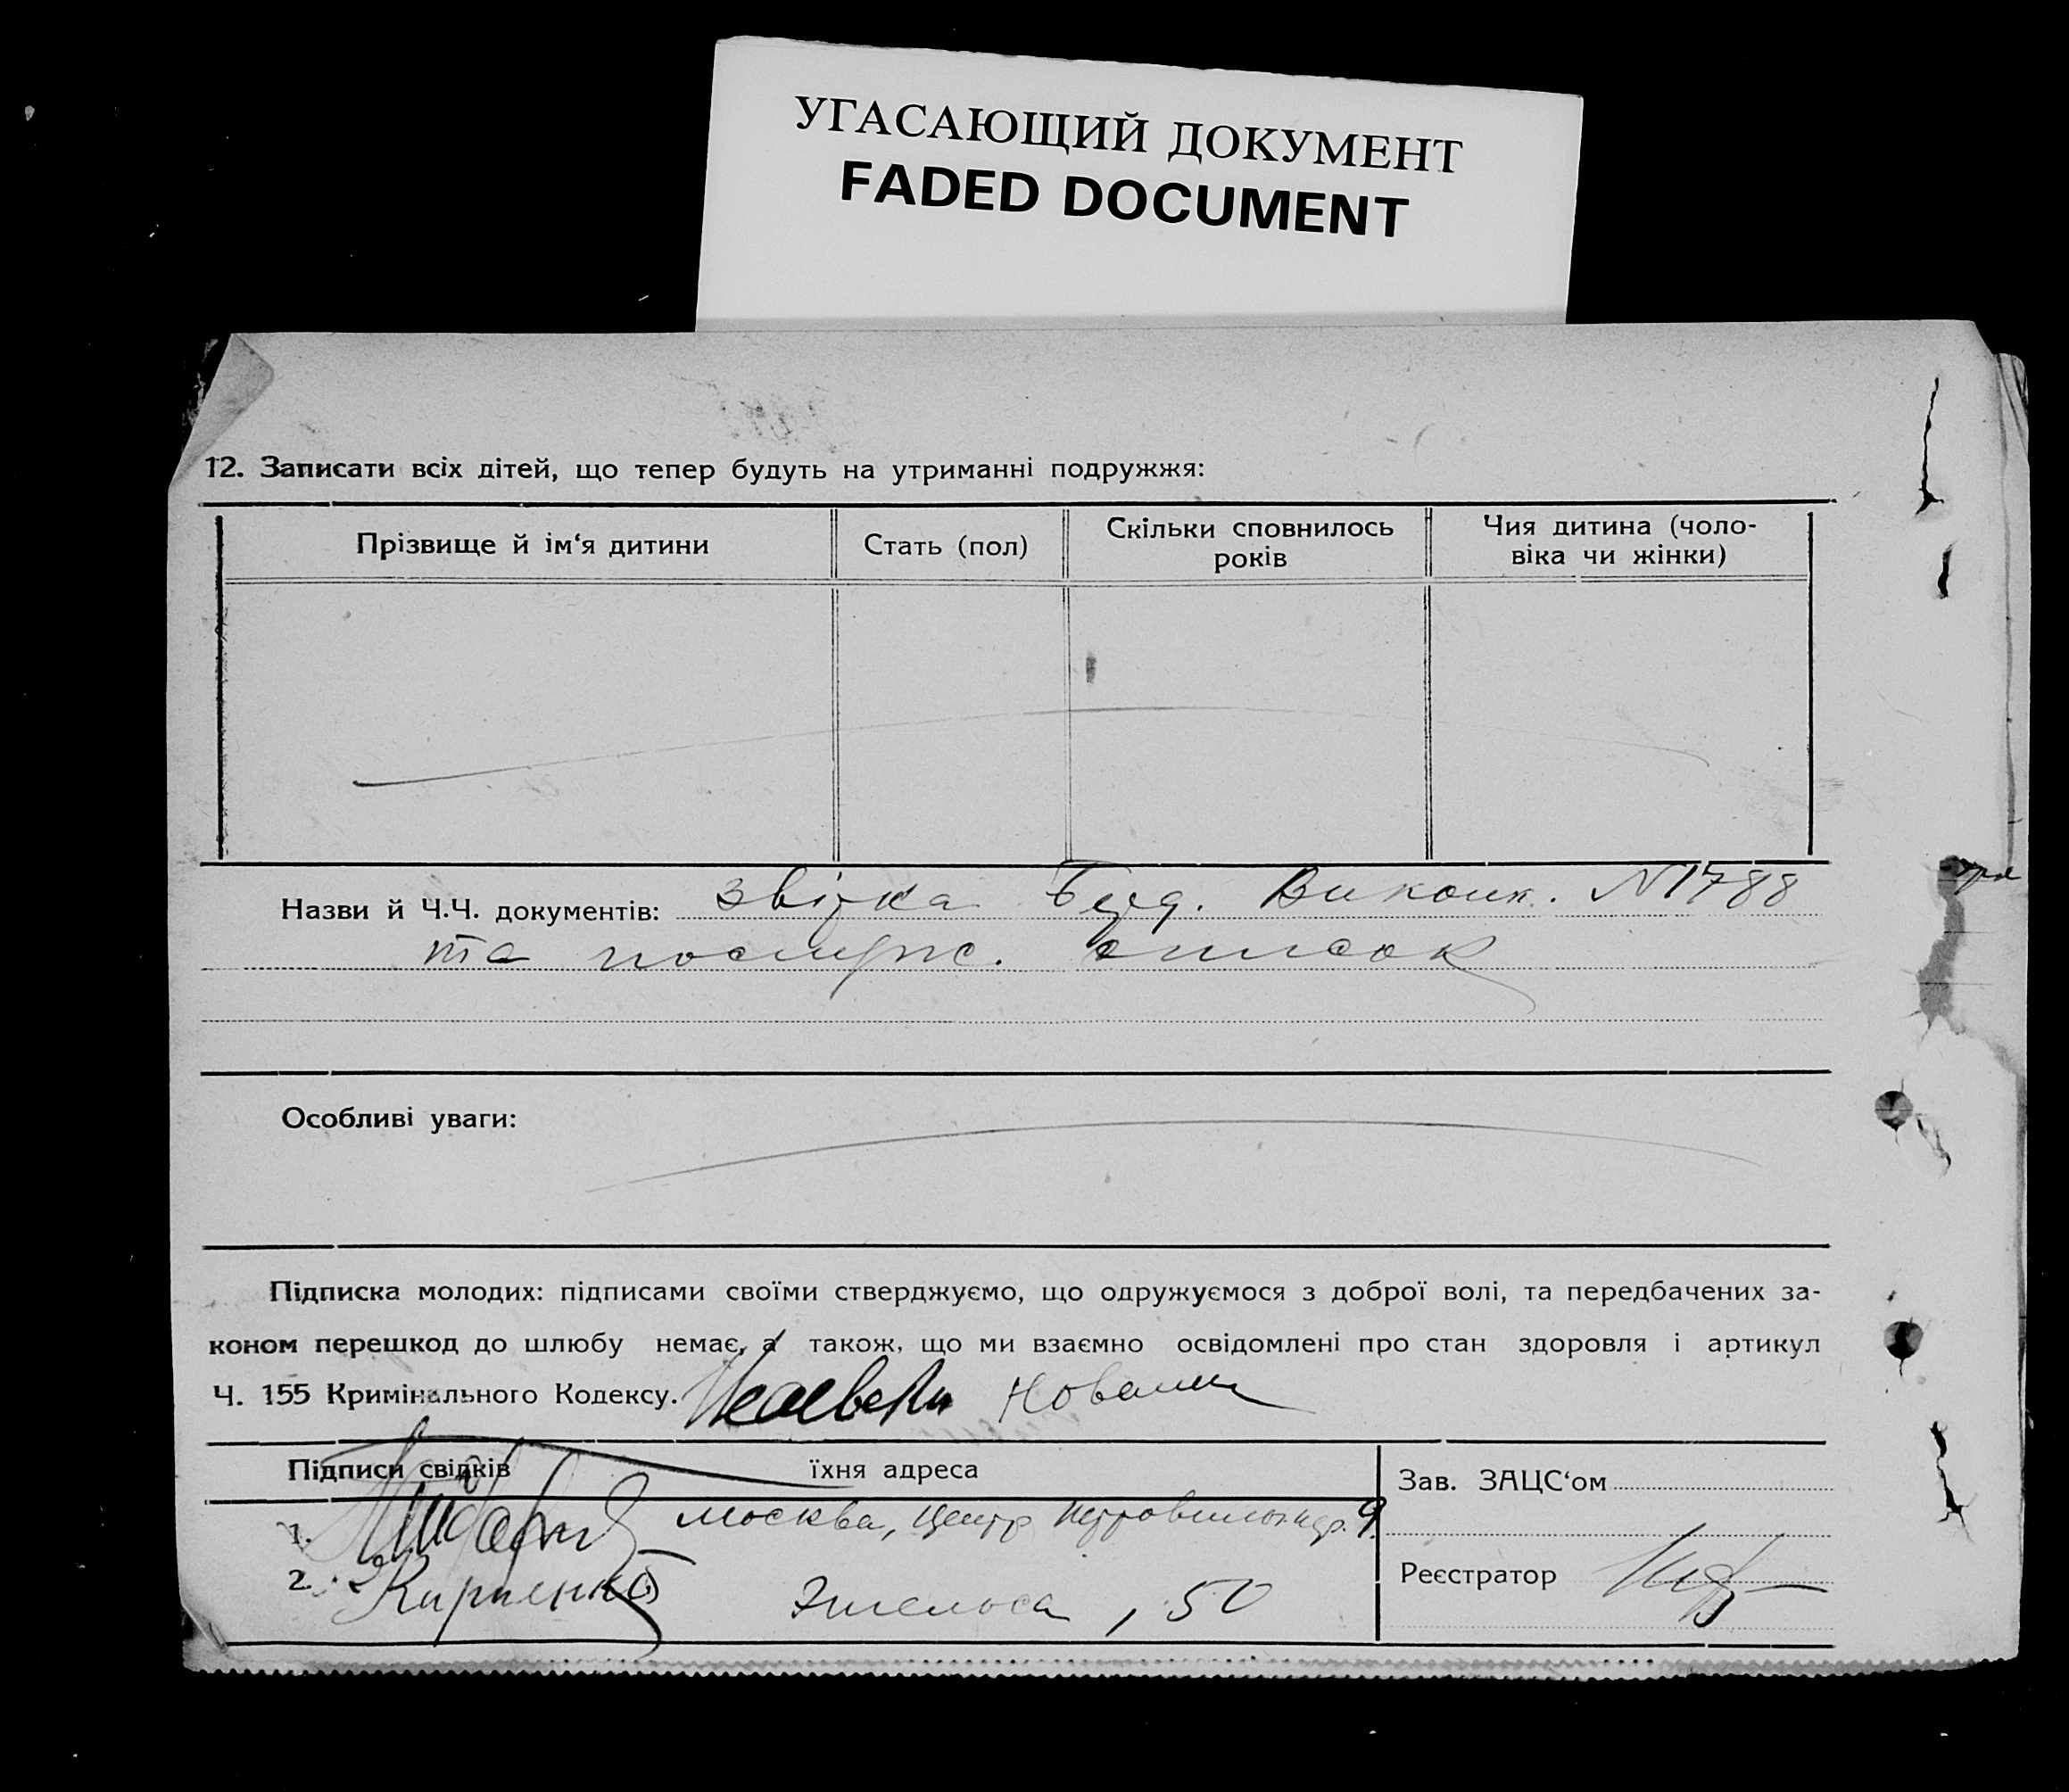 УГАСАЮЩИЙ ДОКУМЕНТ
FADED DOCUMENT
12. Записати всіх дітей, що тепер будуть на утриманні подружжя:
Прізвище й ім‘я дитини
Стать (пол)
Скільки сповнилось
років
Чия дитина (чоло-
віка чи жінки)
Назви й Ч.Ч. документів: звідка Буд. Викон. N1788
та послужс. список
Особливі уваги:
Підписка молодих: підписами своїми стверджуємо, що одружуємося з доброї волі, та передбачених за-
коном перешкод до шлюбу немає, а також, що ми взаємно освідомлені про стан здоровля і артикул
Ч. 155 Кримінального Кодексу.
Підписи свідків їхня адреса
Зав. ЗАЦС‘ом
1. Москва, Центр 9
2. Кириленко Энгельса, 50
Реєстратор